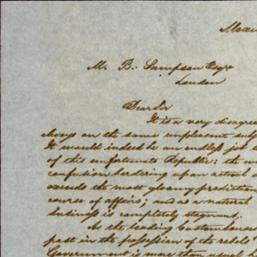 Mexi
M. B. Sampson Esqr
London
Dear Sir
It is a very disagree
always on the same unpleasant sub
It would indeed be an endless job to
of this unfortunate Republic: the
confusion bordering upon actual
exceeds the most gloomy prediction
course of affairs; and as a natural
business is completely stagnant.
As the leading Customhouses
past in the possession of the rebels
Government is more than usual